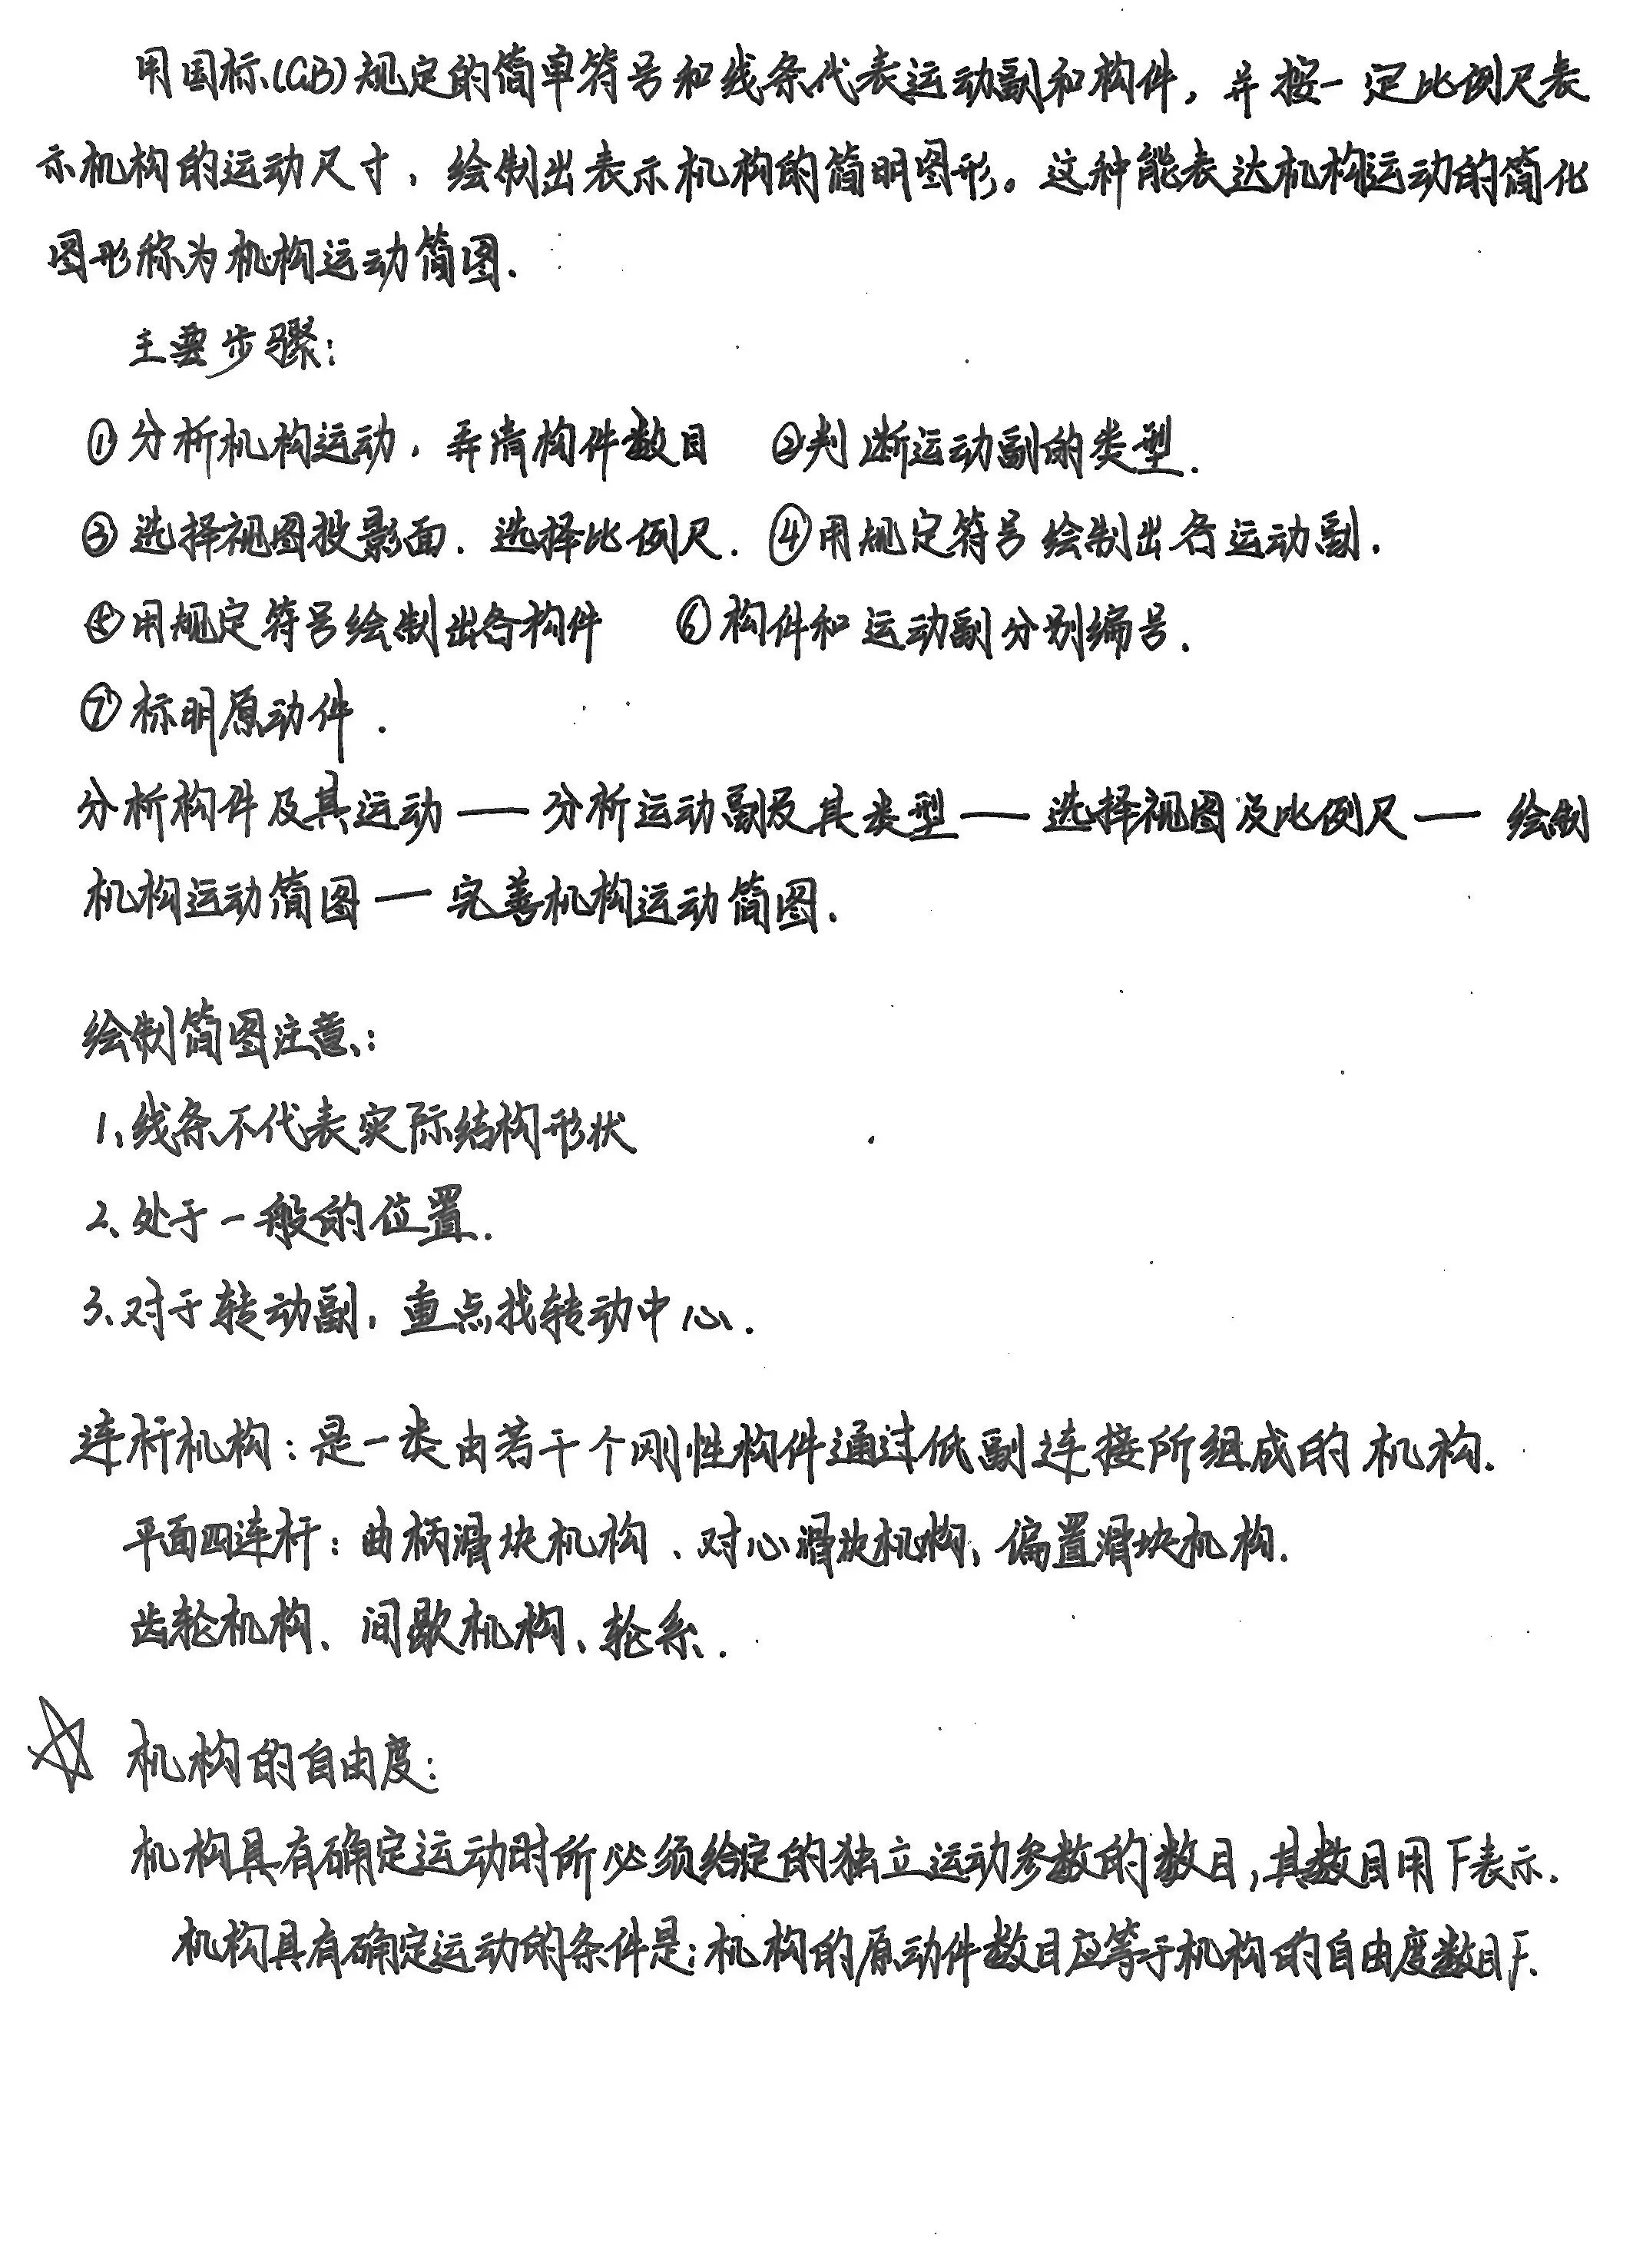 用国标(GB)规定的简单符号和线条代表运动副和构件，并按一定比例尺表
示机构的运动尺寸，绘制出表示机构的简明图形。这种能表达机构运动的简化
图形称为机构运动简图.
主要步骤:
①分析机构运动，弄清构件数目 ②判断运动副的类型.
③选择视图投影面.选择比例尺.④用规定符号绘制出各运动副.
⑤用规定符号绘制出各构件 ⑥构件和运动副分别编号.
⑦标明原动件.
分析构件及其运动——分析运动副及其类型——选择视图及比例尺——绘制
机构运动简图——完善机构运动简图.
绘制简图注意:
1、线条不代表实际结构形状
2、处于一般的位置.
3、对于转动副，重点找转动中心.
连杆机构:是一类由若干个刚性构件通过低副连接所组成的机构.
平面四连杆:曲柄滑块机构、对心滑块机构、偏置滑块机构.
齿轮机构、间歇机构、轮系.
☆ 机构的自由度:
机构具有确定运动时所必须给定的独立运动参数的数目,其数目用F表示.
机构具有确定运动的条件是:机构的原动件数目应等于机构的自由度数目F.